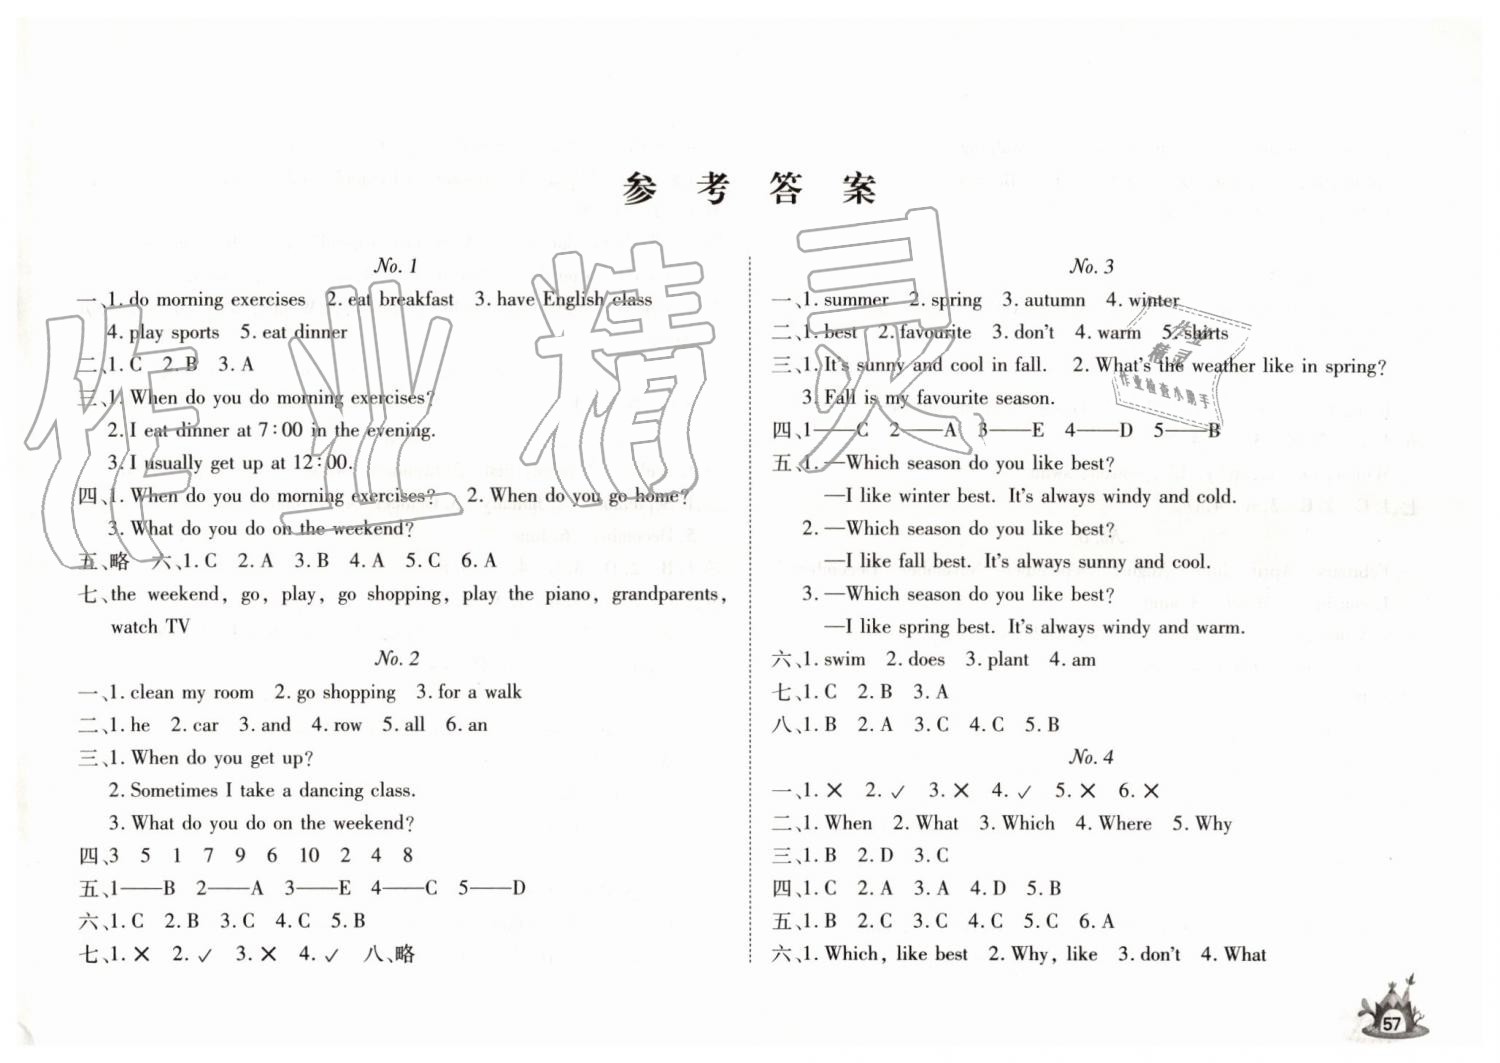 参考答案
No. 1
一、1. do morning exercises 2. eat breakfast 3. have English class
4. play sports 5. eat dinner
二、1. C 2. B 3. A
三、1. When do you do morning exercises?
2. I eat dinner at 7:00 in the evening.
3. I usually get up at 12:00.
四、1. When do you do morning exercises? 2. When do you go home?
3. What do you do on the weekend?
五、略 六、1. C 2. A 3. B 4. A 5. C 6. A
七、the weekend, go, play, go shopping, play the piano, grandparents,
watch TV
No. 2
一、1. clean my room 2. go shopping 3. for a walk
二、1. he 2. car 3. and 4. row 5. all 6. an
三、1. When do you get up?
2. Sometimes I take a dancing class.
3. What do you do on the weekend?
四、3 5 1 7 9 6 10 2 4 8
五、1——B 2——A 3——E 4——C 5——D
六、1. C 2. B 3. C 4. C 5. B
七、1. ✕ 2. ✓ 3. ✕ 4. ✓ 八、略
No. 3
一、1. summer 2. spring 3. autumn 4. winter
二、1. best 2. favourite 3. don't 4. warm 5. shirts
三、1. It's sunny and cool in fall. 2. What's the weather like in spring?
3. Fall is my favourite season.
四、1——C 2——A 3——E 4——D 5——B
五、1. —Which season do you like best?
—I like winter best. It's always windy and cold.
2. —Which season do you like best?
—I like fall best. It's always sunny and cool.
3. —Which season do you like best?
—I like spring best. It's always windy and warm.
六、1. swim 2. does 3. plant 4. am
七、1. C 2. B 3. A
八、1. B 2. A 3. C 4. C 5. B
No. 4
一、1. ✕ 2. ✓ 3. ✕ 4. ✓ 5. ✕ 6. ✕
二、1. When 2. What 3. Which 4. Where 5. Why
三、1. B 2. D 3. C
四、1. C 2. A 3. A 4. D 5. B
五、1. B 2. C 3. C 4. C 5. C 6. A
六、1. Which, like best 2. Why, like 3. don't 4. What
57
作业精灵
作业
精灵
作业检查小助手